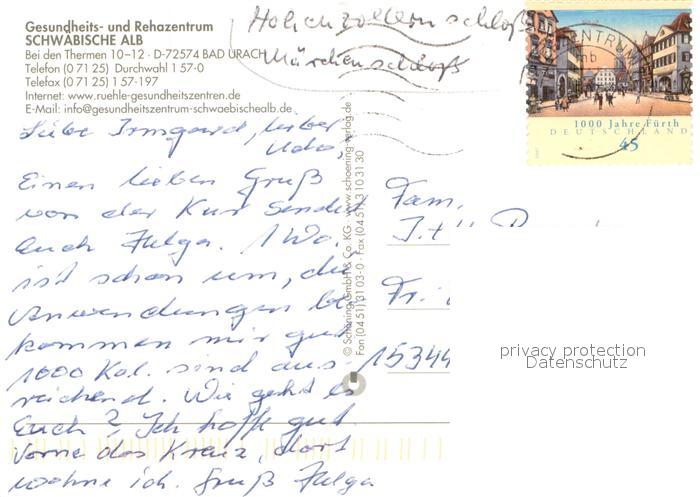 Gesundheits- und Rehazentrum
SCHWÄBISCHE ALB
Bei den Thermen 10–12 · D-72574 BAD URACH
Telefon (0 71 25) Durchwahl 1 57-0
Telefax (0 71 25) 1 57-197
Internet: www.ruehle-gesundheitszentren.de
E-Mail: info@gesundheitszentrum-schwaebischealb.de
Hohenzollernschloß
Märchenschloß
1000 Jahre Fürth
DEUTSCHLAND
45
Liebe Irmgard, lieber
Udo
Einen lieben Gruß
von der Kur sendet
Euch Helga. 1 Wo.
ist schon um, die
Anwendungen be-
kommen mir gut
1000 Kal. sind aus-
reichend. Wie geht es
Euch? Ich hoffe gut.
Vorne das Kreuz, dort
wohne ich. Gruß Helga
© Schöning GmbH & Co. KG · www.schoening-verlag.de
Fon (0451) 31 03-0 · Fax (0451) 3 10 31 30
Fam.
15344
privacy protection
Datenschutz